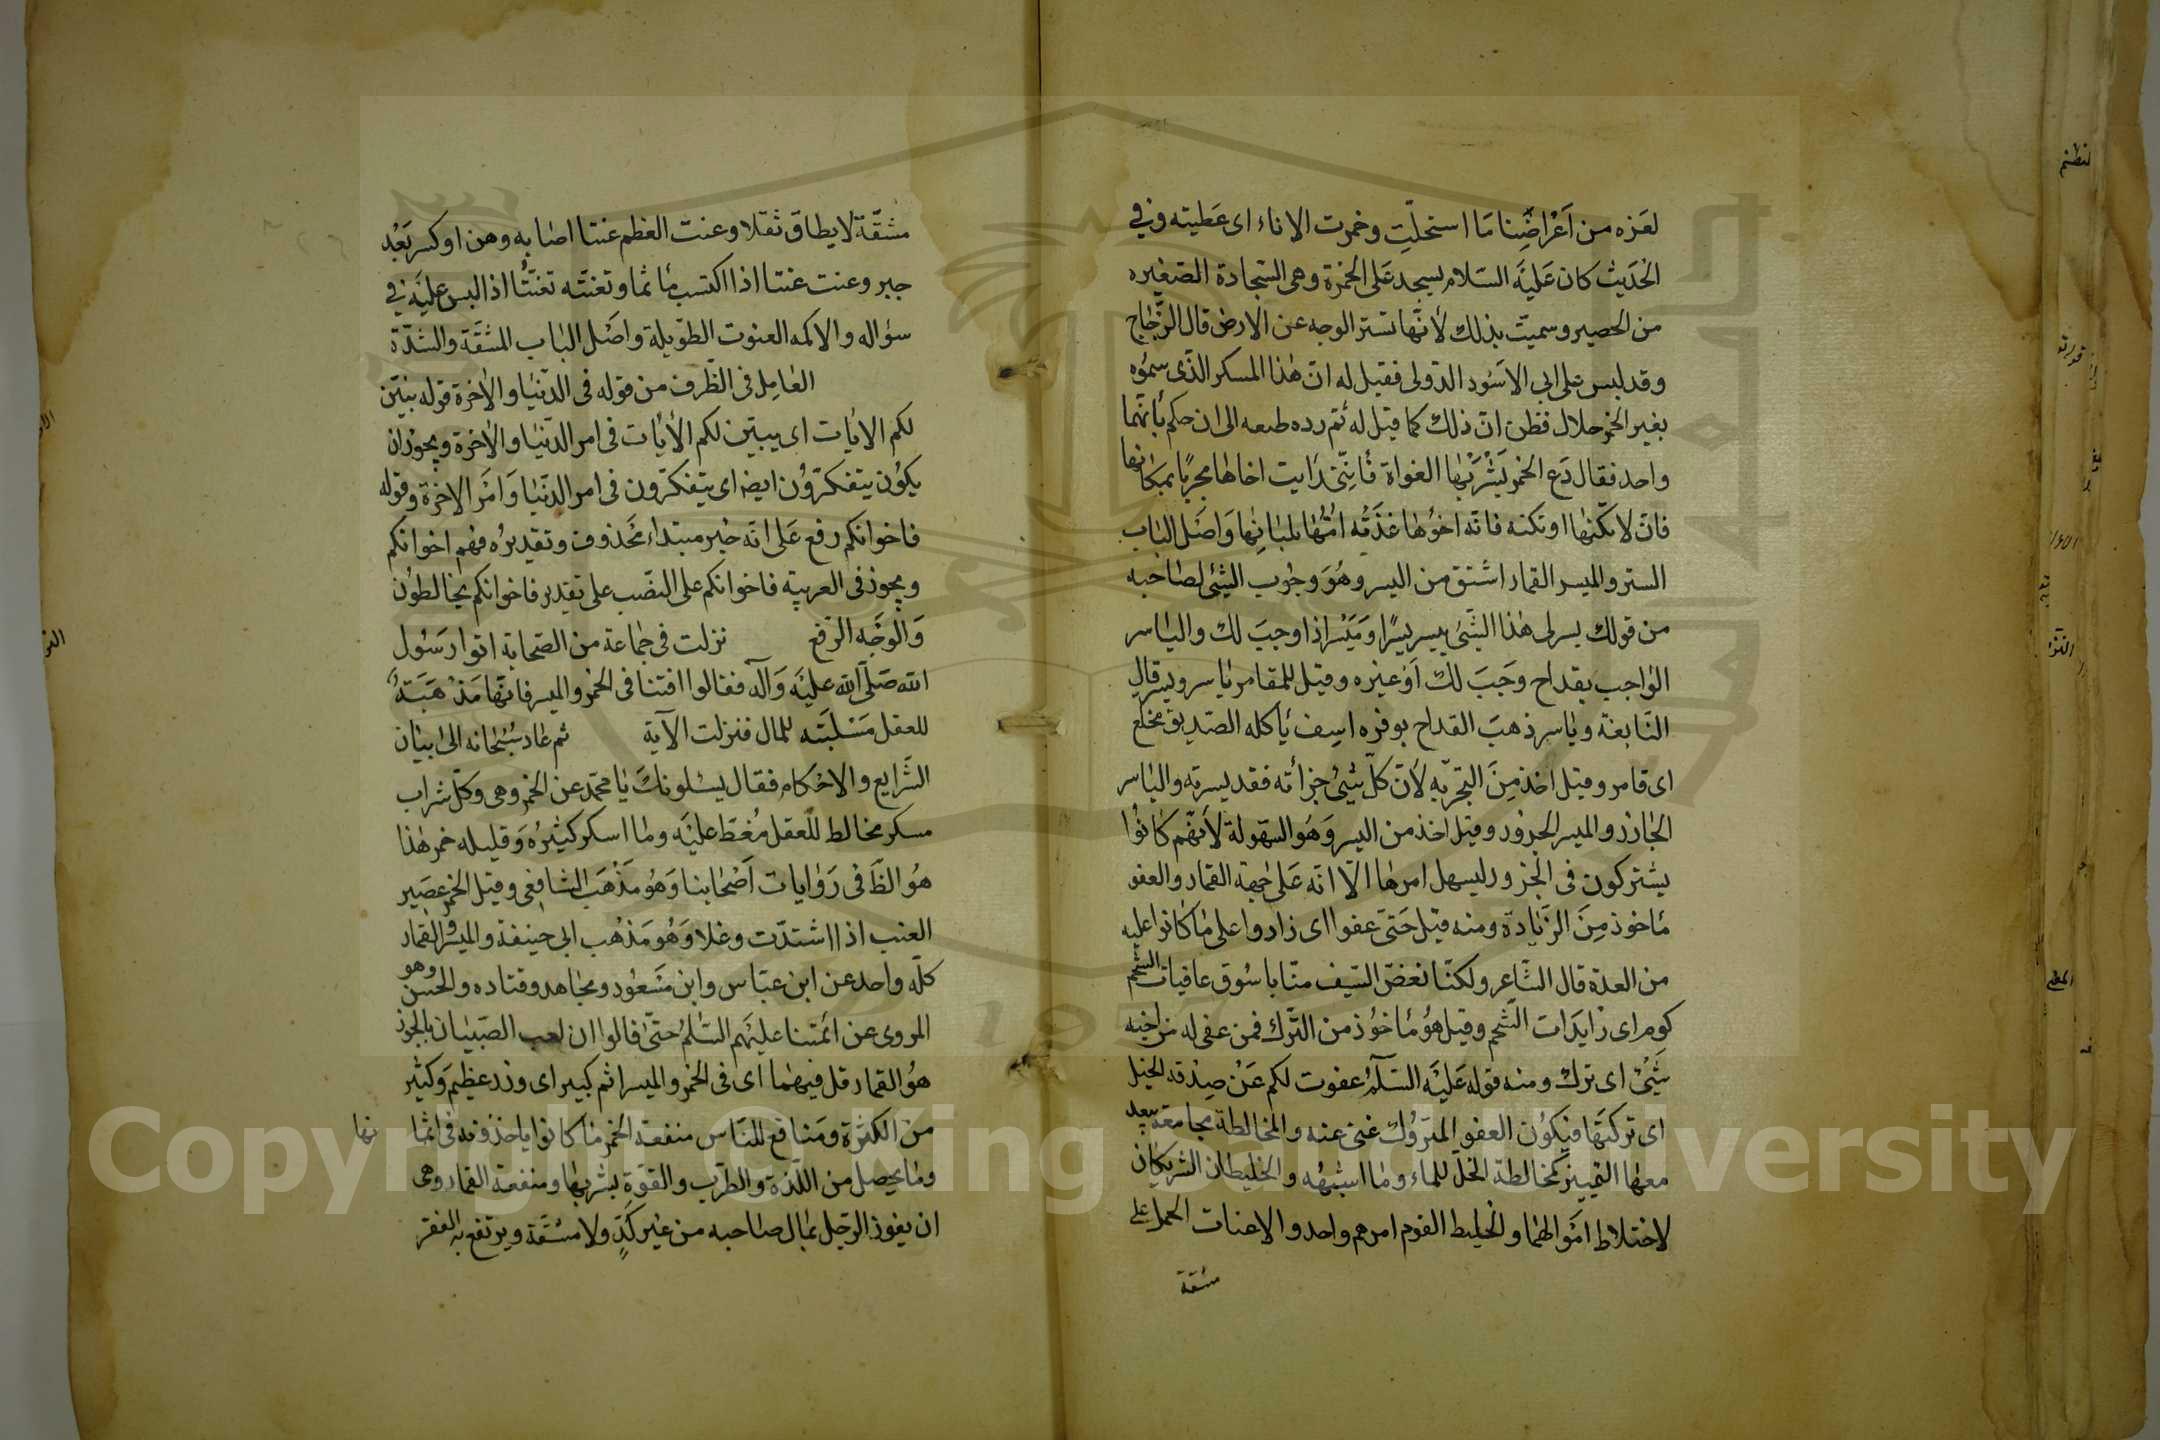 لعزه من اَعْراضِنا مَا استحلّتِ وخمرت الاناء اى عَطيته وفي
الحَديث كان عَليَه السّلام يسجد عَلى الخمرة وهى السّجادة الصّغيره
من الحصير وسميّت بذلك لأنّها تستر الوجه عن الارض قال الزّجاج
وقد لبس على ابى الاسَود الدّولى فقيل له انّ هٰذا المسكر الذّى سمّوه
بغير الخمر حلال فظن انّ ذلك كما قيل له ثم رده طبعه الى ان حكم بأنهّما
واحد فقال دَع الخمر يَشْرَبْها الغواة فأنِنّى رايت اخاها مجرئا بمكانها
فان لا يكنها او تكنه فانّه اخوُها غذَتُه امُّها بلبانِها وَاصَل البٰاب
الستر والميسر القمار اشتق من اليسر وهُوَ وجوب الشّئ لصٰاحبه
من قولك يسر لى هٰذا الشّئ ييسر يسرًا وَمَيْسرا اذا وجبَ لك والياسر
الوٰاجب بقداح وجَبَ لك اَوْ غيره وقيل للمقامر يٰاسر ويسر قال
النّابغة وياسر ذهبَ القداح بوفره اسِف يأكله الصّديق مخلّع
اى قامر وقيل اخذ مِنَ التجزيه لأنّ كلّ شئ جزأته فقد يسرته والياسر
الجٰازر والميسر الجزور وقيل اخذ من اليسر وَهُو السّهولة لأنّهم كانوُا
يشتركون فى الجزور ليسهل امرها الاّ انّه عَلى جهة القمار والعفو
مأخوذ مِنَ الزّيٰادة ومنه قيل حَتىّ عفوا اى زادوا على مٰا كانوا عليه
من العدة قال الشّاعر ولكنّا نعضّ السّيف منّا باسُوق عافيات الشّحم
كوم اى زٰايدَات الشّحم وقيل هُو مأخوُذ من التّرك فمن عفى له من اخيه
شَئْ اى ترك ومنه قوله عَليَه السّلآم عفوت لكم عَنْ صِدْقه الخيل
اى تركتَها فيَكُوْن العفو المترُوُك غنى عنه والمخالطة مجامعة يتعد
معها التّمييز كمخالطة الخلّ للماء ومٰا اشبهُه والخليطان الشّريكان
لاختلاط امَوالهمٰا والخليط القوم امرهم واحد والاعنات الحمل على
مشقة
مشقّة لا يطاق ثقلا وعنت العظم عنتا اصٰابه وهن او كسر بَعْد
جبر وعنت عنتا اذا اكتسب مأثما وتعنتّه تعنتّا اذا لبس عليَه في
سؤاله والاكمه العنوت الطّويلة واصْل البٰاب المشقّة والشدّة
العٰامِل فى الظّرف من قوله فى الدّنيٰا والاٰخرة قوله يبيّن
لكم الايٰات اى يبيّن لكم الأيٰات فى امر الدّنيٰا والاٰخرة ويجوْز ان
يكوُن يتفكّروُن ايضا اى يتفكّرون فى امر الدّنيٰا وَامَر الاخرة وقوله
فاخوانكم رفع عَلى انّه خبر مبتداء محَذوف وتقديرُه فهُم اخوانكم
ويجوز فى العربيّة فاخوانكم على النصّب على تقدير فاخوانكم يخالطوُن
وَالوجَه الرّفع نزلت فى جماعة من الصّحٰابة اتوا رسَوُل
الله صَلّى الله عليَه وَآله فقالوا افتنا فى الخمر والميسر فانهّا مَذْهَبَةٌ
للعقل مَسْلبَتَه للمال فنزلت الآية ثم عٰاد سُبْحانه الى بيٰان
الشّرايع والاحْكام فقال يسئلونكَ يٰا محمّد عن الخمر وهى وكلّ شراب
مسكر مخالط للّعقل مُغطّ عليَه ومٰا اسكر كثيرُه وَقليله خمر هٰذا
هُو الظّ فى رَوٰايات اَصْحٰابنا وَهُو مَذْهَب الشّافعى وقيل الخمر عصَير
العنب اذا اشتدّت وغلا وَهُو مَذْهب ابى حنيفة والميسر والقمار
كلّه واحد عن ابن عبّاس وابن مسَعُود ومجٰاهد وقتاده والحسن وهو
المروى عن ائمّتنا عليَهم السّلم حتىّ قالوا ان لعب الصّبيٰان بالجوز
هُو القمار قل فيهمٰا اى فى الخمر والميسر اثم كبير اى وزر عظيم وَكثير
من الكثرة ومَنافع للنّاس منفعة الخمر مٰا كانوا ياخذونه فى اثمٰا
نها
ومٰا يحصل من اللّذة والطّرب والقوّة بشربها ومنفعة القمار وهى
ان يفوز الرّجل بمال صٰاحبه من غير كَدٍّ ولا مشقّة ويرتفع به الفقر